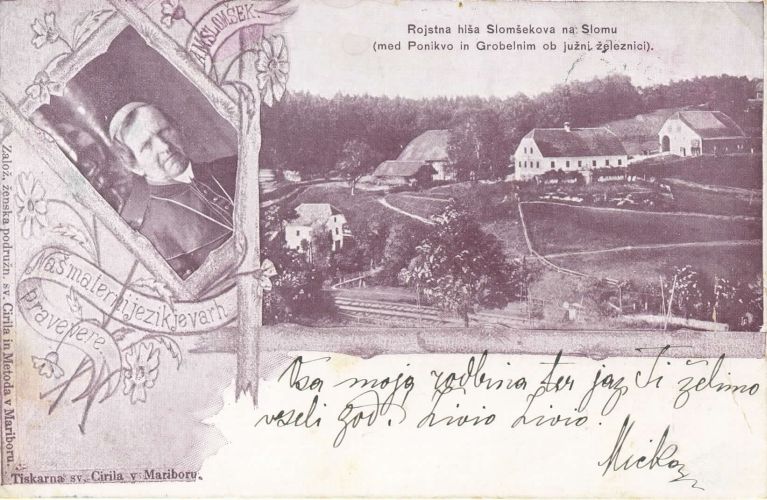 A.M. SLOMŠEK.
Rojstna hiša Slomšekova na Slomu
(med Ponikvo in Grobelnim ob južni železnici).
Naš materni jezik je varh
prave vere
Založ. ženska podružn. sv. Cirila in Metoda v Mariboru.
Vsa moja rodbina ter jaz Ti želimo
veseli god. Živio Živio.
Micka
Tiskarna sv. Cirila v Mariboru.